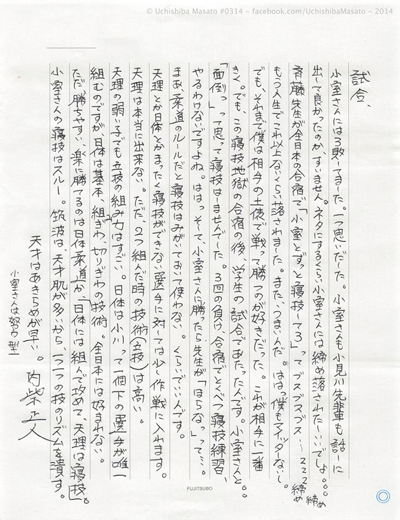 © Uchishiba Masato #0314 – facebook.com/UchishibaMasato – 2014
試合、
小室さんには3敗してました。一つ思いだした。小室さんも小見川先輩も話しに
出して良かったのか、すいません。ネタにするくらい小室さんには締め落されたしいいでしょ。
斉藤先生が全日本の合宿で「小室とずっと寝技してろ」ってブスブスブス…
もう人生でこれ以上ないくらい落されました。また、つまいんだ。ははっ僕もアイッタなぁ…。
でも、それまで僕は相手の土俵で戦って勝つのが好きだった。これが相手に一番
きく。でも、この寝技地獄の合宿の後、学生の試合であたったんです。小室さんと。
「面倒」って思って寝技しませんでした。3回の負け、合宿でとくべつ寝技練習、
やるわけないですよね。ははっそーて、小室さんに勝ったら先生が「ほらな。」って…。
まあ、柔道のルールだと寝技はみがいておいて使わない。くらいでいいんです。
天理とか日体とかまったく寝技ができない選手に対しては少し作戦に入れます。
天理は本当に出来ない。ただ、立つ組んだ時の技術(立技)は高い。
天理の弱い子でも立技の組み力はすごい。日体は小川って一個下の選手が唯一
組むのですが、日体は基本、組ぎわ、切りぎわの技術。全日本には好まれない。
ただ勝ちやすい、楽に勝てるのは日体柔道か、日体には組んで攻めて、天理は寝技。
小室さんの寝技はスルー。筑波は、天才肌が多いから、一つ一つの技のリズムを潰す。
天才はあきらめが早い。内柴正人
小室さんは努力型
FUJITSUBO